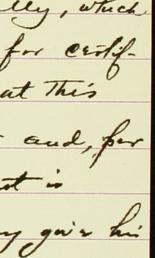 lly, which
for certif-
at this
and, for
st is
y give his